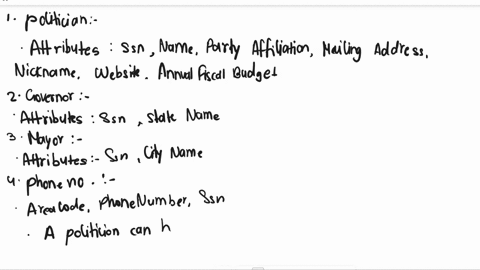 1. Politician:-
· Attributes : Ssn, Name, Party Affiliation, Mailing Address,
Nickname, Website. Annual Fiscal Budget
2. Governor :-
· Attributes : Ssn, State Name
3. Mayor :-
· Attributes:- Ssn, City Name
4. phone no. :-
· Area Code, Phone Number, Ssn
· A politician can h